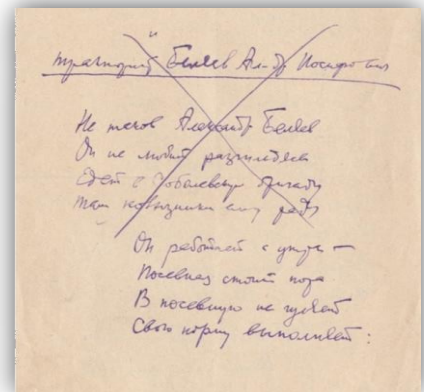 тракторист Беляев Ал-др Иосифович
Не таков Александр Беляев
Он не любит
Едет в бригаду
Там ему рады
Он работает с утра —
Посевная стоит пора
В посевную не гуляет
Свою норму выполняет: